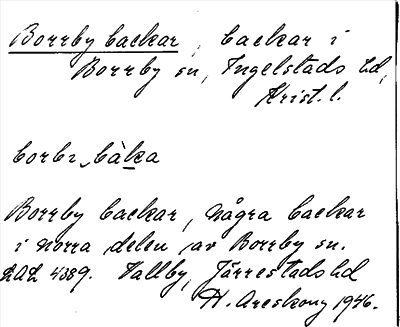 Borrby backar, backar i
Borrby sn, Ingelstads hd,
Krist. l.
borbɪ bàka
Borrby backar, några backar
i norra delen av Borrby sn.
LAL 4389. Vallby, Järrestads hd
H. Areskoug 1946.